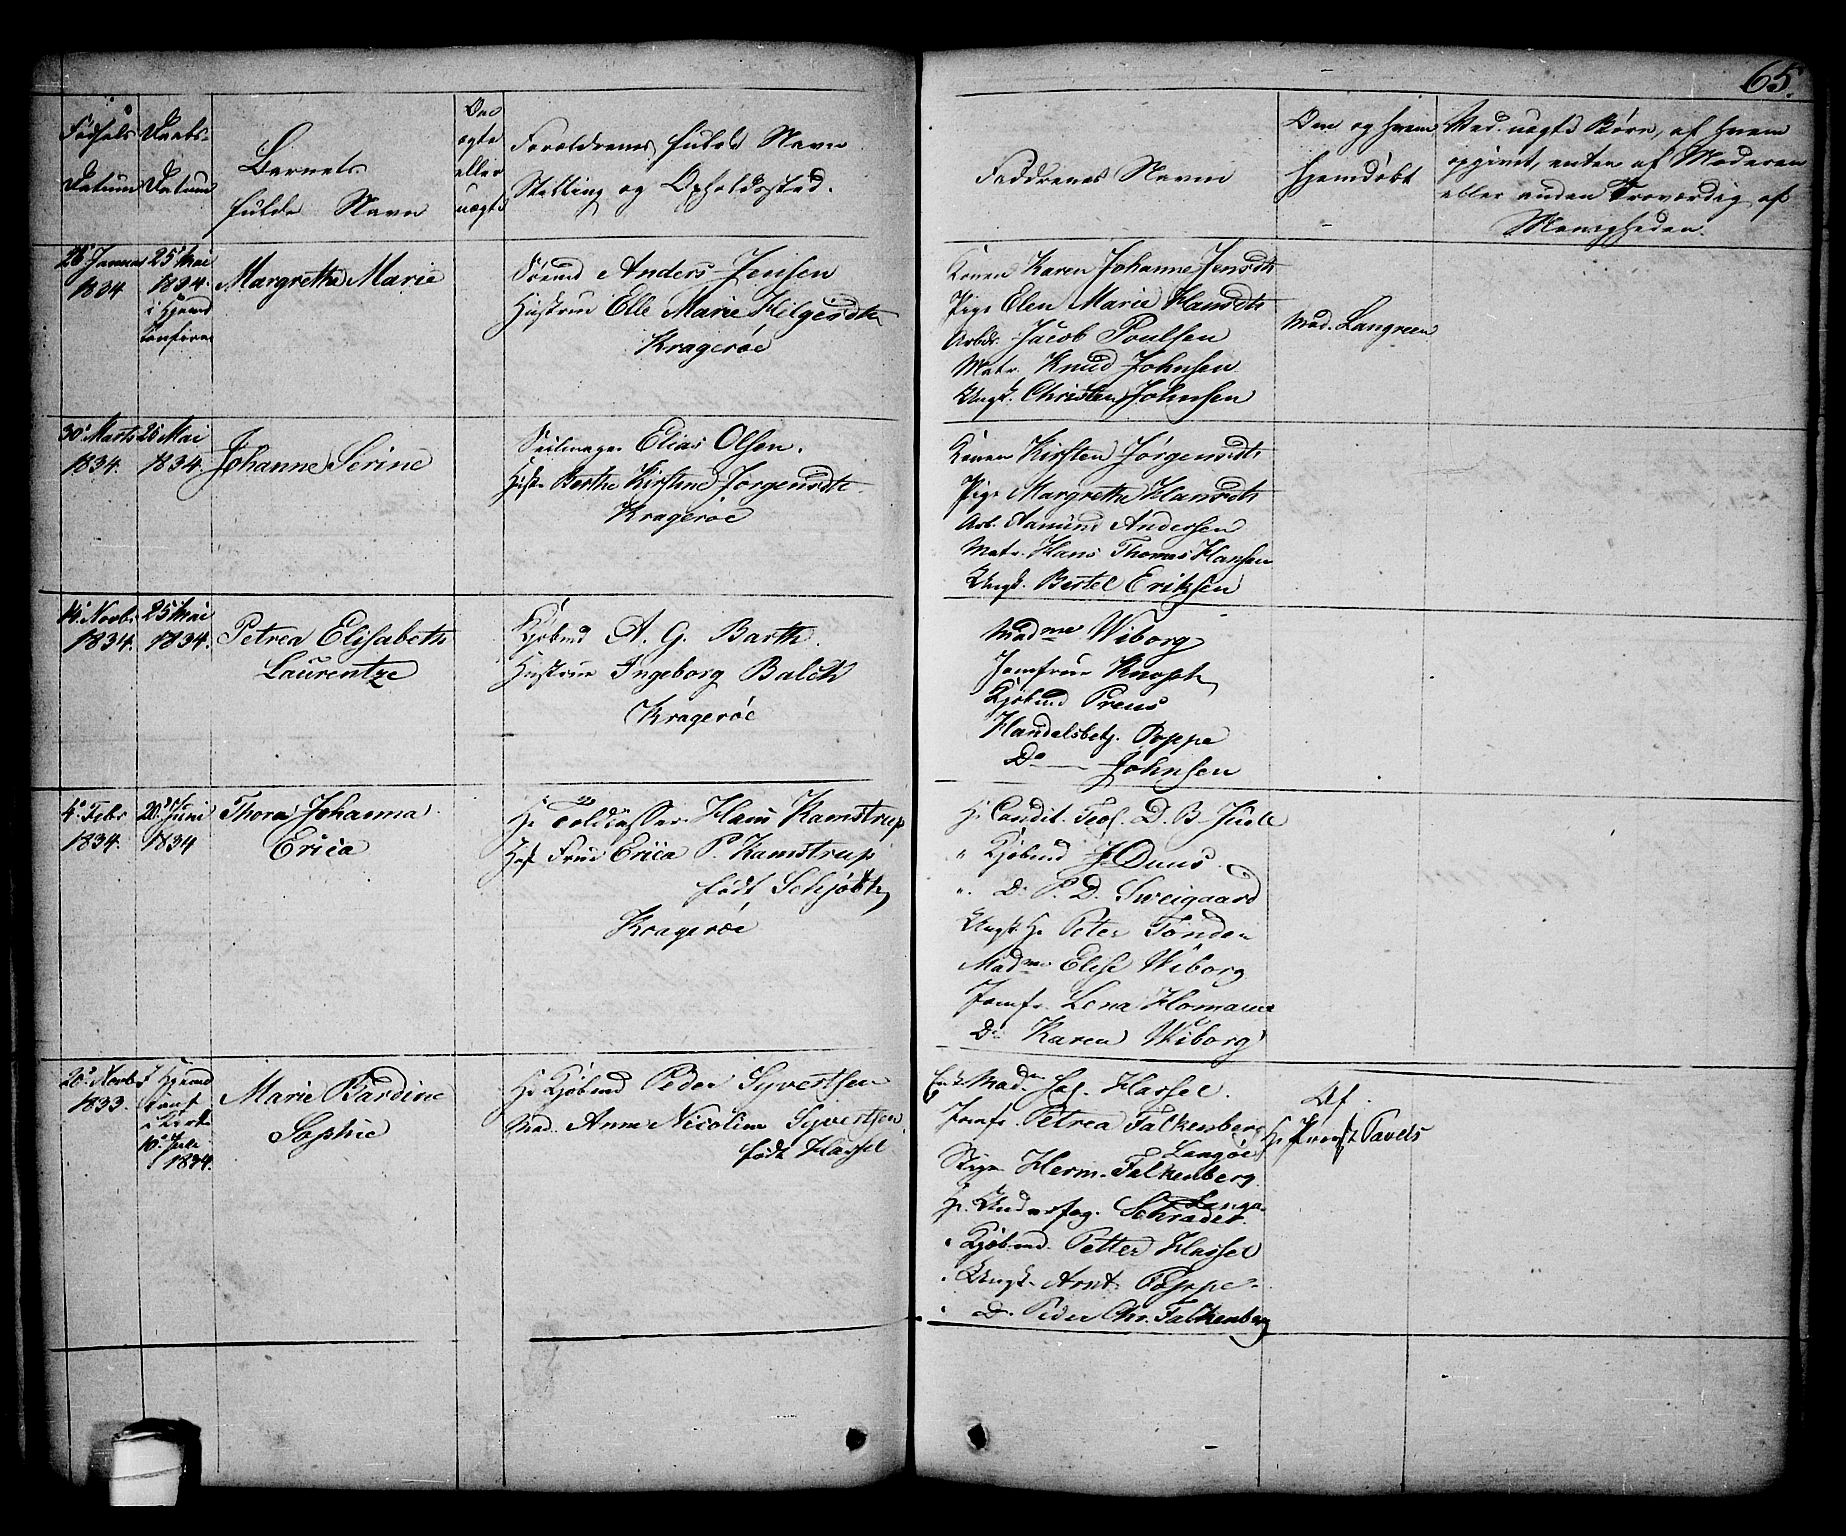 65.
Fødsels Datum
Daabs- Datum
Barnets fulde Navn
Om ægte eller uægte
Forældrenes fulde Navn
Stilling og Opholdssted.
Faddrenes Navne
Om og hvem hjemdøbt
Ved uægte Børn, af hvem
opgivet, enten af Moderen
eller anden Troværdig af
Menigheden.
1834
25 Mai
1834.
i Hjemd
Margrethe Marie
Anders Jensen
Hustrue Elle Marie
Kragerøe
Konen Karen Johanne Jensdtr
Pige Elen Marie Hansdtr
Arbdr. Jacob Poulsen
Matr. Knud Johnsen
Ungk. Christen Johnsen
Mad. Langreen
30 Marts
1834.
25 Mai
1834.
Johanne Serine
Seilmager Elias Olsen.
Hustr Berthe Kirstine Jørgensdtr.
Kragerøe
Konen Kirsten Jørgensdtr
Pige Margrethe Hansdtr
Arb. Aamund Andersen
Matr. Hans Thomas Hansen
Ungk. Bertel Eriksen
14 Novbr
1834.
25 Mai
1834.
Petrea Elisabeth
Laurentze
Kjøbmd A. G. Barth.
Hustrue Ingeborg Balch
Kragerøe
Madme Wiborg
Jomfrue Knoph
Kjøbmd Preus
Handelsbetj. Poppe
Do Johnsen
4 Febr
1834.
20 Juni
1834
Thora Johanna
Erica
Hr Toldcasserer Hans Kamstrup
Frue Erica P. Kamstrup
født Schjøth
Kragerøe
Hr Candit. Teol. D. B. Juell
" Kjøbmd J Duus
" Do P. D. Sveigaard
Ungk. Hr Peter Tønder
Madme Elise Wiborg
Jomfr. Lena Homann
Do Karen Wiborg
20 Novb
1833.
i Kirke
10 Juli
1834.
Marie Bardine
Sophie
Hr Kjøbmd Peder Syvertsen
Mad. Anne Nicoline Syvertsen
født Hassel
Enke Mad. Hassel.
Jomfr. Petrea Falkenberg
Langøe
Herm. Falkenberg
Langø
Hr. Underfog. Schrader
" Kjøbmd. Petter Hassel
" Ungk. Arnt Poppe
" Do Peder Chr. Falkenberg
Af
Hr Provst Pavels